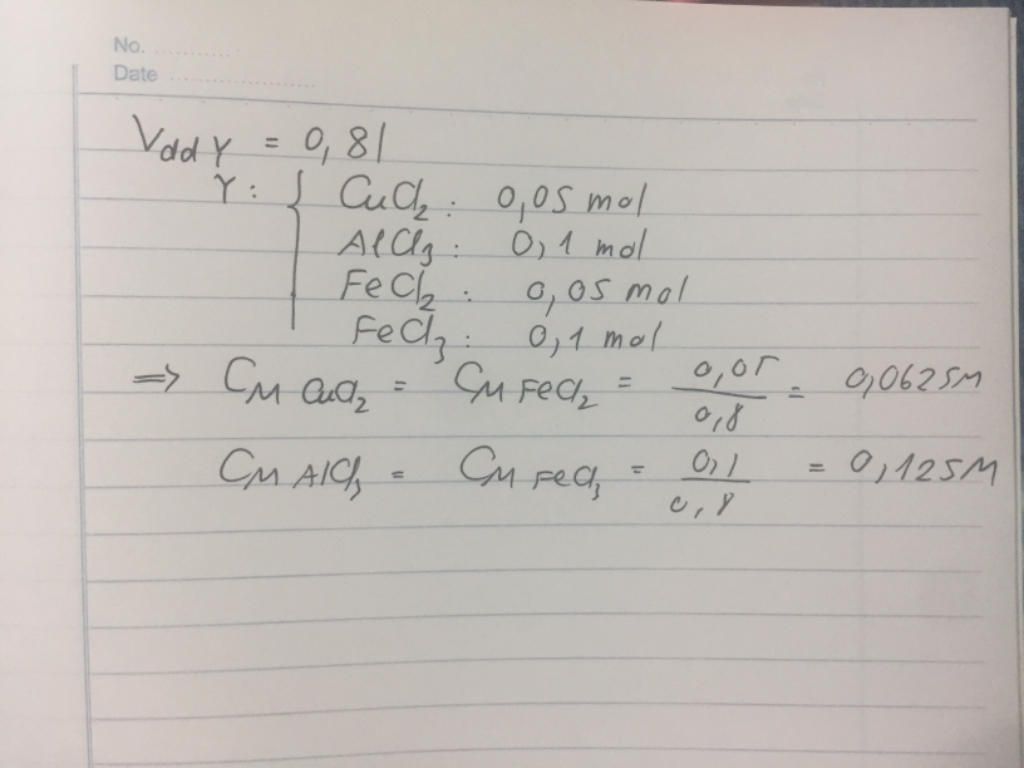 No. ............
Date ........................
Vdd Y = 0,8l
Y: { CuCl₂ : 0,05 mol
AlCl₃ : 0,1 mol
FeCl₂ : 0,05 mol
FeCl₃ : 0,1 mol
=> CM CuCl₂ = CM FeCl₂ = 0,05/0,8 = 0,0625M
CM AlCl₃ = CM FeCl₃ = 0,1/0,8 = 0,125M